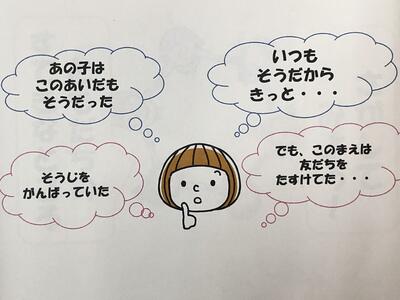 あの子は
このあいだも
そうだった
いつも
そうだから
きっと・・・
そうじを
がんばっていた
でも、このまえは
友だちを
たすけてた・・・